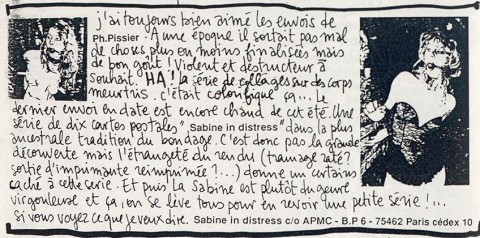 j'ai toujours bien aimé les envois de
Ph.Pissier. A une époque il sortait pas mal
de choses plus en moins finalisées mais
de bon goût ! Violent et destructeur à
souhait. HA ! la série de collages sur des corps
meurtris. c'était colorifique ça... Le
dernier envoi en date est encore chaud de cet été. Une
série de dix cartes postales "Sabine in distress" dans la plus
ancestrale tradition du bondage. C'est donc pas la grande
découverte mais l'étrangeté du rendu (tramage raté?
sortie d'imprimante réimprimée ?...) donne un certains
caché à cette série. Et puis la Sabine est plutôt du genre
virgouleuse et ça, on se lève tous pour en revoir une petite série !...
si vous voyez ce que je veux dire. Sabine in distress c/o APMC - B.P 6 - 75462 Paris cédex 10